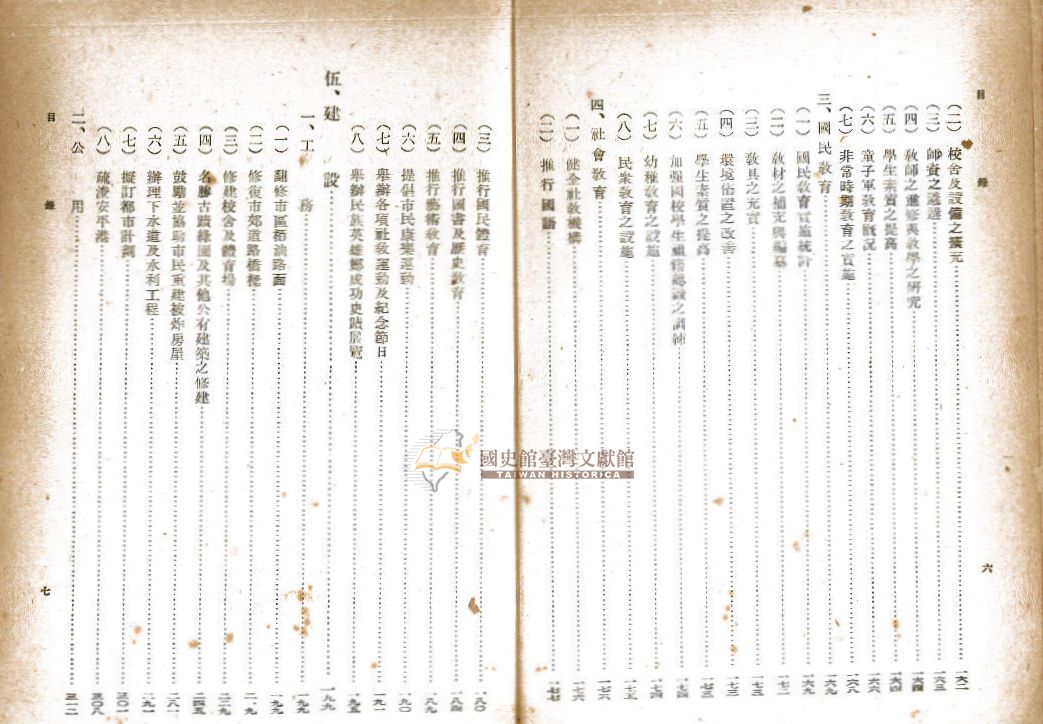 目錄
六
(二) 校舍及設備之擴充……一六二
(三) 師資之遴選……一六三
(四) 教師之進修與教學之研究……一六四
(五) 學生素質之提高……
(六) 童子軍教育概況……一六六
(七) 非常時期教育之實施……一六八
三、國民教育……一六九
(一) 國民教育實施統計……一六九
(二) 教材之補充與編纂……一七二
(三) 教具之充實……一七三
(四) 環境佈置之改善……一七三
(五) 學生素質之提高……一七三
(六) 加强國校學生之訓練……一七四
(七) 幼稚教育之設施……一七四
(八) 民衆教育之設施……一七五
四、社會教育……一七六
(一) 健全社教機構……一七六
(二) 推行國語……一七七
(三) 推行國民體育……一八〇
(四) 推行圖書及歷史教育……一八四
(五) 推行藝術教育……一八九
(六) 提倡市民康樂運動……一九〇
(七) 舉辦各項社教運動及紀念節日……一九一
(八) 舉辦民族英雄鄭成功史蹟展覽……一九五
伍、建設……一九九
一、工務……一九九
(一) 翻修市區柏油路面……一九九
(二) 修復市郊道路橋樑……
(三) 修建校舍及體育場……二二九
(四) 名勝古蹟綠園及其他公有建築之修建……二四五
(五) 鼓勵並協助市民重建被炸房屋……二八一
(六) 辦理下水道及水利工程……二九一
(七) 擬訂都市計劃……三〇一
(八) 疏浚安平港……三〇八
二、公用……三一二
目錄
七
國史館臺灣文獻館
TAIWAN HISTORICA